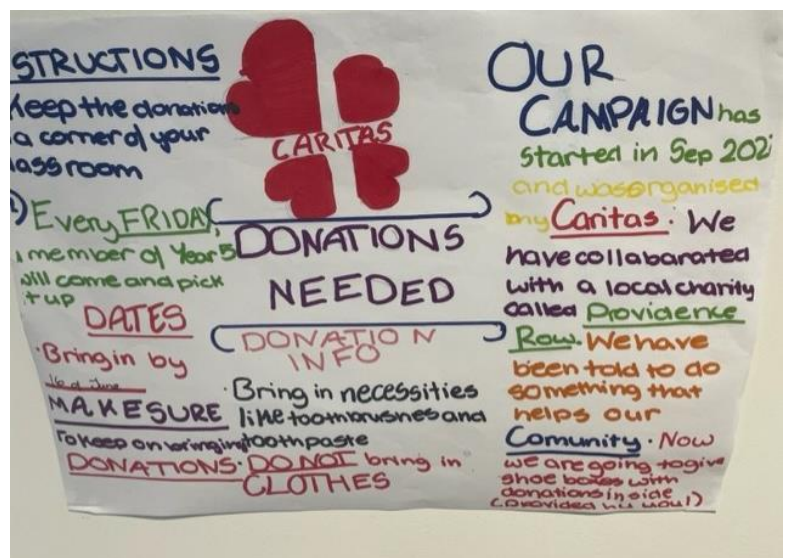 STRUCTIONS
Keep the donation
a corner of your
assroom
Every FRIDAY,
member of Year 5
will come and pick
it up
DATES
·Bring in by
16 of June
MAKE SURE
To keep on bringing
DONATIONS·
CARITAS
DONATIONS
NEEDED
DONATION
INFO
·Bring in necessities
like toothbrushes and
toothpaste
DO NOT bring in
CLOTHES
OUR
CAMPAIGN has
started in Sep 202
and was organised
my Caritas. We
have collabarated
with a local charity
called Providence
Row. We have
been told to do
something that
helps our
Comunity. Now
we are going to give
shoe boxes with
donations inside
(provided by you!)